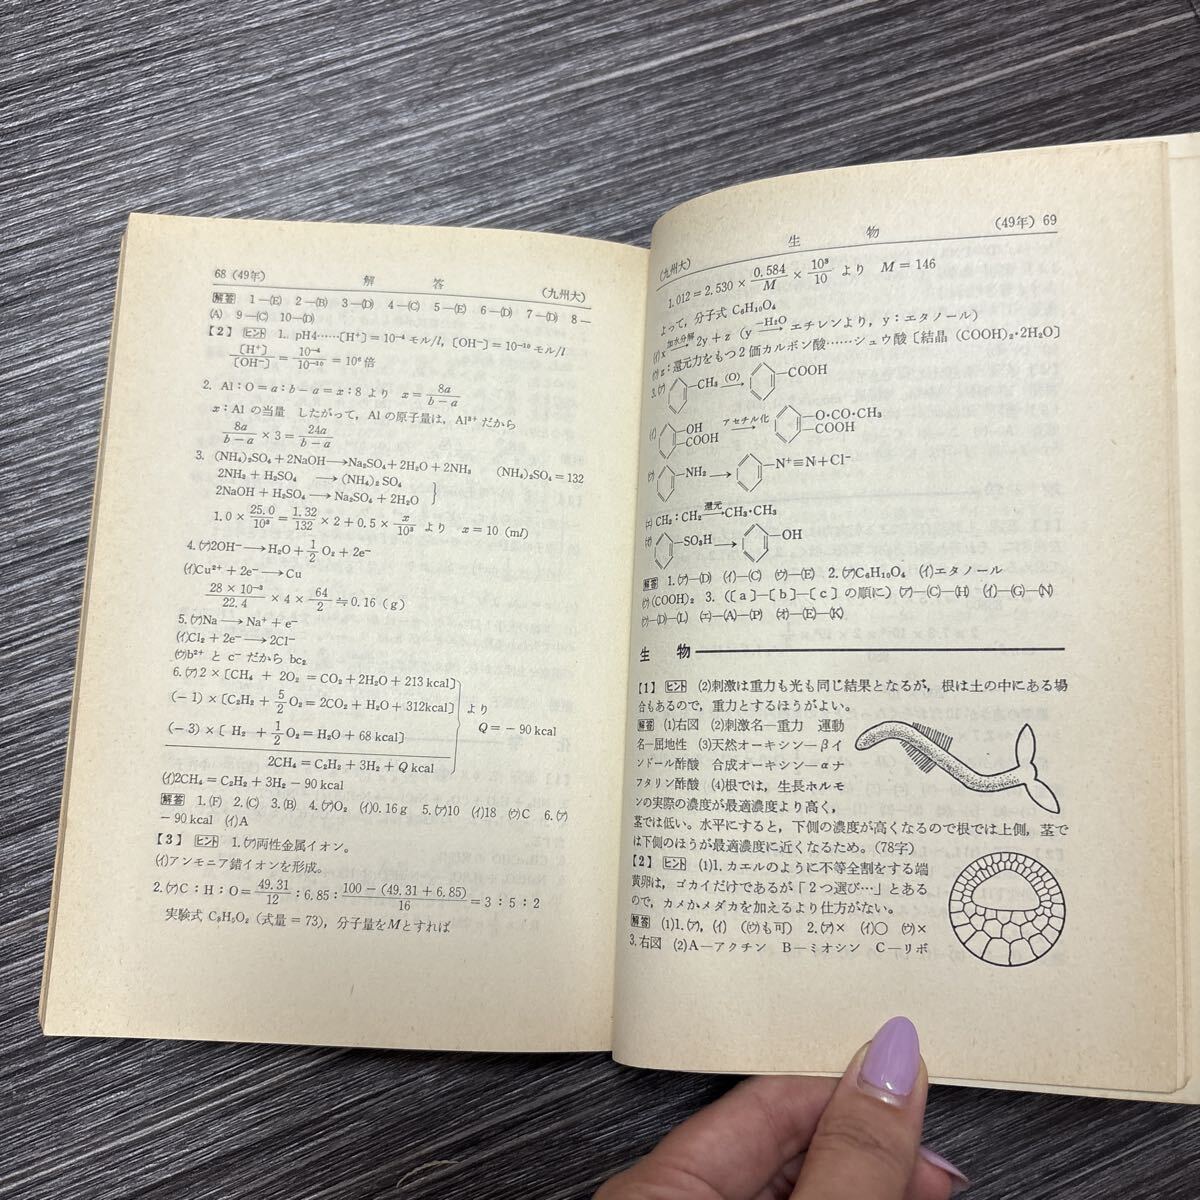 68 (49年) 解 答 (九州大)
解答 1―(E) 2―(B) 3―(D) 4―(C) 5―(E) 6―(D) 7―(D) 8―
(A) 9―(C) 10―(D)
【2】 ヒント 1. pH4……[H⁺]=10⁻⁴ モル/l, [OH⁻]=10⁻¹⁰ モル/l
[H⁺]/[OH⁻] = 10⁻⁴/10⁻¹⁰ = 10⁶ 倍
2. Al:O=a:b−a=x:8 より x= 8a/b−a
x:Al の当量 したがって, Al の原子量は, Al³⁺ だから
8a/b−a × 3 = 24a/b−a
3. (NH₄)₂SO₄+2NaOH→Na₂SO₄+2H₂O+2NH₃ (NH₄)₂SO₄=132
2NH₃+H₂SO₄ →(NH₄)₂SO₄
2NaOH+H₂SO₄→Na₂SO₄+2H₂O
1.0× 25.0/10³ = 1.32/132 ×2+0.5× x/10³ より x=10 (ml)
4. (ア)2OH⁻→H₂O+ 1/2 O₂+2e⁻
(イ)Cu²⁺+2e⁻→Cu
28×10⁻³/22.4 ×4× 64/2 ≒0.16 (g)
5. (ア)Na→Na⁺+e⁻
(イ)Cl₂+2e⁻→2Cl⁻
(ウ)b²⁺ と c⁻ だから bc₂
6. (ア)2×[CH₄ + 2O₂ = CO₂+2H₂O+213 kcal]
(−1)×[C₂H₂+ 5/2 O₂=2CO₂+H₂O+312kcal] より
(−3)×[ H₂+ 1/2 O₂=H₂O+68 kcal] Q=−90 kcal
2CH₄=C₂H₂+3H₂+Q kcal
(イ)2CH₄=C₂H₂+3H₂−90 kcal
解答 1. (F) 2. (C) 3. (B) 4. (ア)O₂ (イ)0.16 g 5. (ア)10 (イ)18 (ウ)C 6. (ア)
−90 kcal (イ)A
【3】 ヒント 1. (ア)両性金属イオン。
(イ)アンモニア錯イオンを形成。
2. (ア)C:H:O= 49.31/12 : 6.85 : 100−(49.31+6.85)/16 =3:5:2
実験式 C₃H₅O₂ (式量=73), 分子量をMとすれば
(九州大) 生 物 (49年) 69
1.012=2.530× 0.584/M × 10³/10 より M=146
よって, 分子式 C₆H₁₀O₄
(イ)x 加水分解→ 2y+z (y −H₂O→ エチレンより, y:エタノール)
(ウ)z:還元力をもつ2価カルボン酸……シュウ酸〔結晶 (COOH)₂・2H₂O〕
3. (ア) −CH₃ (O)→ −COOH
(イ) OH COOH アセチル化→ O・CO・CH₃ COOH
(ウ) −NH₂→ −N⁺≡N+Cl⁻
(エ) CH₂:CH₂ 還元→CH₃・CH₃
(オ) −SO₃H→ −OH
解答 1. (ア)―(D) (イ)―(C) (ウ)―(E) 2. (ア)C₆H₁₀O₄ (イ)エタノール
(ウ)(COOH)₂ 3. ([a]―[b]―[c]の順に) (ア)―(C)―(H) (イ)―(G)―(N)
(ウ)―(D)―(L) (エ)―(A)―(P) (オ)―(E)―(K)
生 物
【1】 ヒント (2)刺激は重力も光も同じ結果となるが, 根は土の中にある場
合もあるので, 重力とするほうがよい。
解答 (1)右図 (2)刺激名―重力 運動
名―屈地性 (3)天然オーキシン―βイ
ンドール酢酸 合成オーキシン―αナ
フタリン酢酸 (4)根では, 生長ホルモ
ンの実際の濃度が最適濃度より高く,
茎では低い。水平にすると, 下側の濃度が高くなるので根では上側, 茎で
は下側のほうが最適濃度に近くなるため。(78字)
【2】 ヒント (1)1. カエルのように不等全割をする端
黄卵は, ゴカイだけであるが「2つ選び…」とある
ので, カメかメダカを加えるより仕方がない。
解答 (1)1. (ア), (イ) (ウも可) 2. (ア)× (イ)○ (ウ)×
3. 右図 (2)A―アクチン B―ミオシン C―リボ